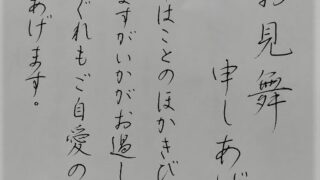 お見舞
申しあげ
はことのほかきび
ますがいかがお過し
ぐれもご自愛の
あげます。